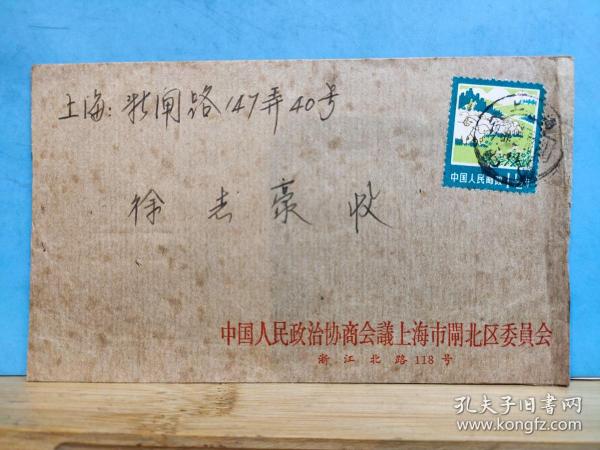 上海:新闸路147弄40号
中国人民邮政 1½分
徐志豪收
中国人民政治协商会議上海市閘北区委員会
浙江北路118号
孔夫子旧书网
www.kongfz.com